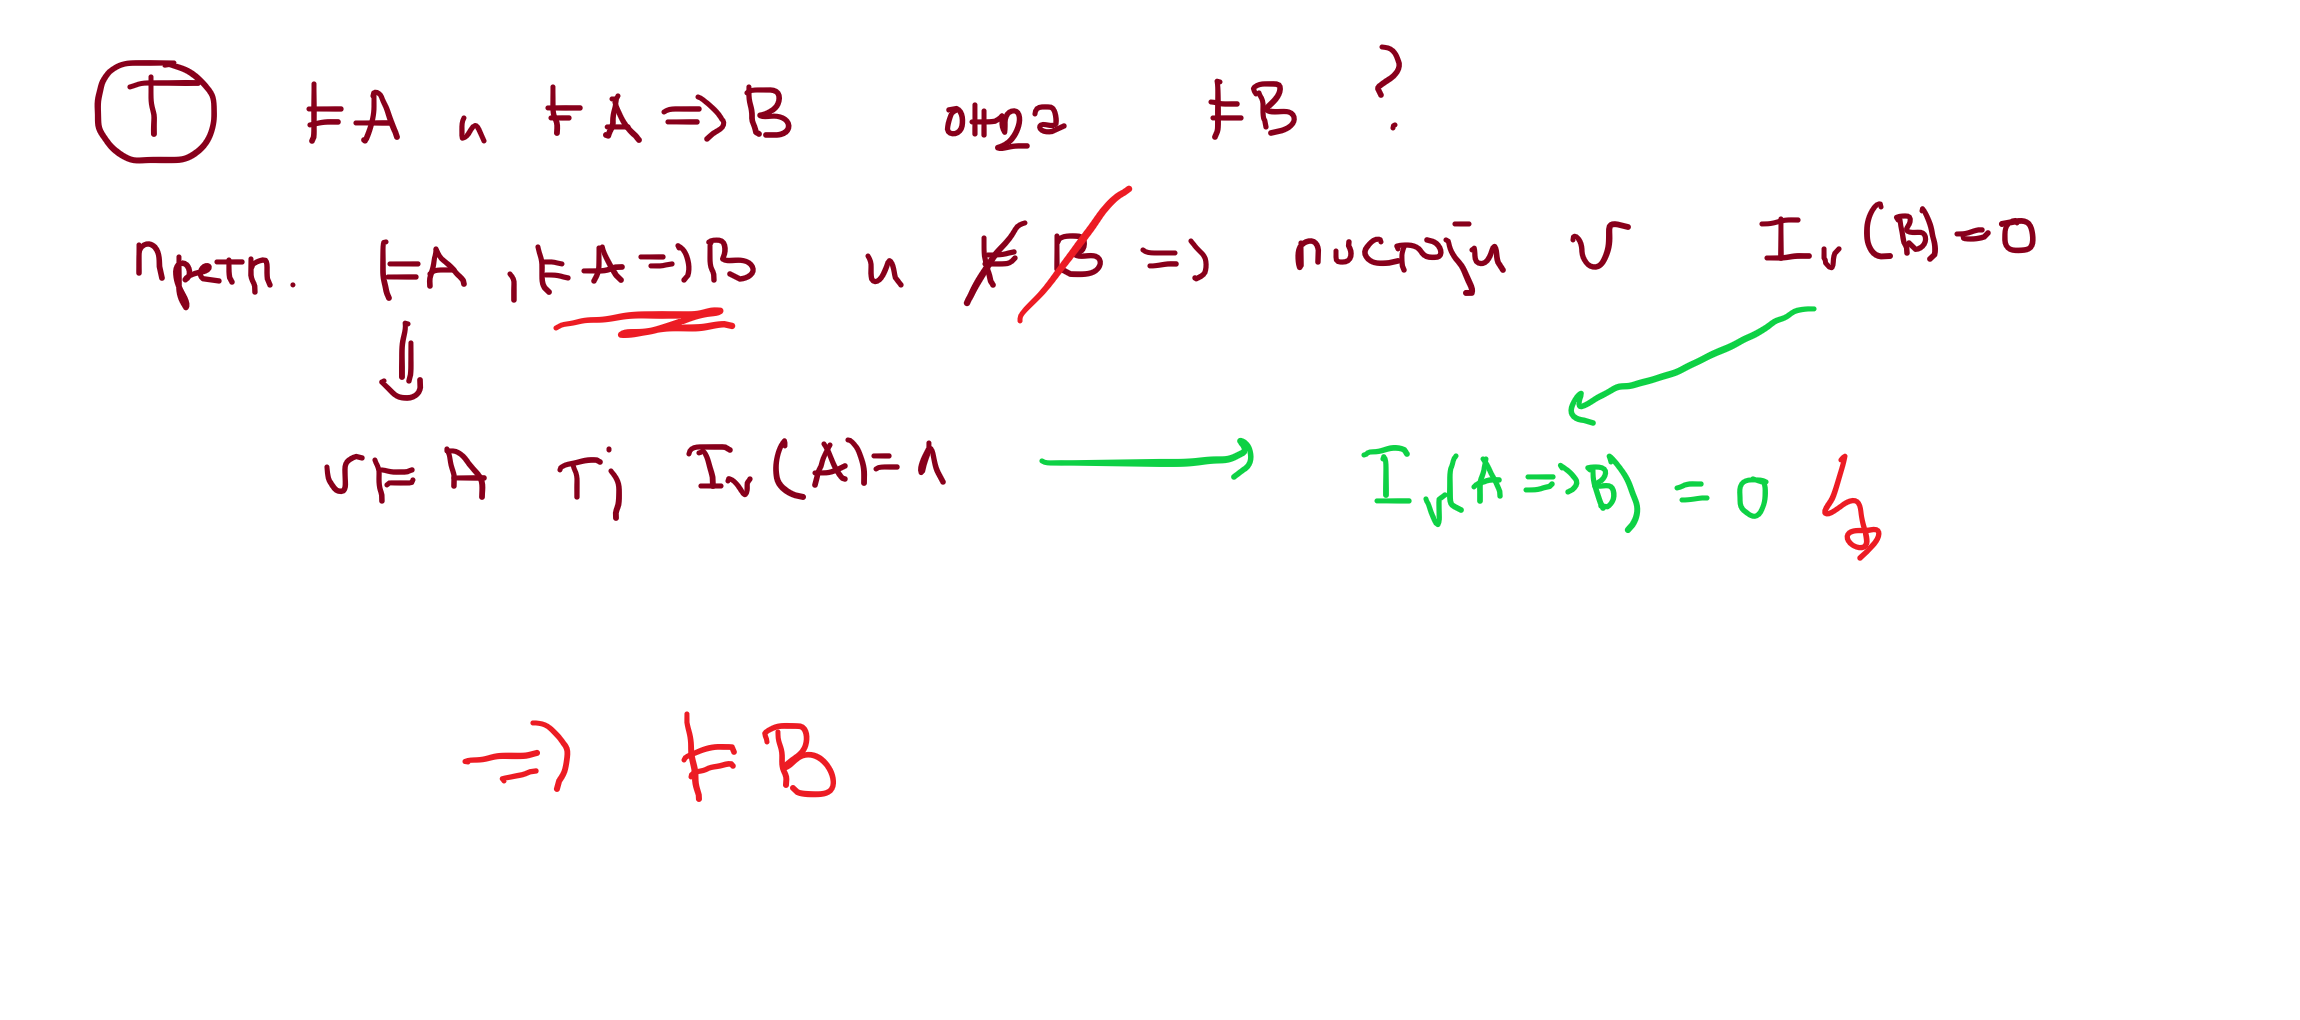 T ⊨ A и ⊨ A ⇒ B онда ⊨ B ?
претп. ⊨ A , ⊨ A ⇒ B и ⊭ B ⇒ постоји v I_v (B) = 0
v ⊨ A тј I_v (A) = 1 → I_v (A ⇒ B) = 0 ↯
⇒ ⊨ B